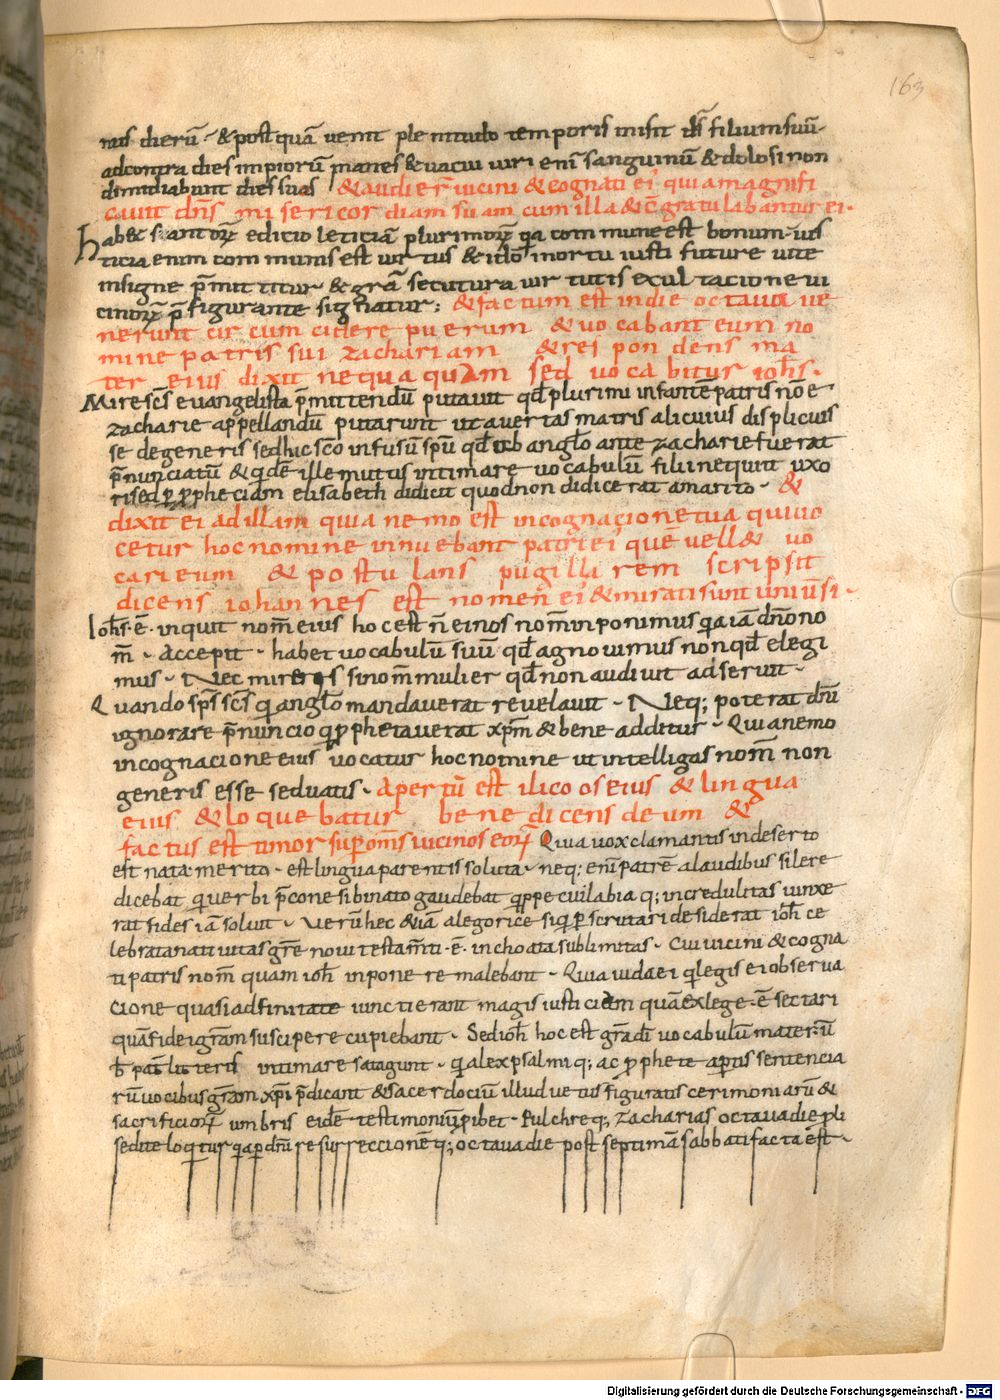 163
nus dierū · & postquā venit plenitudo temporis misit ds̄ filium suū·
ad contra dies impiorū manes & vacui viri enī sanguinū & dolosi non
dimidiabunt dies suos & audier̄ vicini & cognati ei' quia magnifi
cavit dn̄s misericordiam suam cum illa & c̄gratulabantur ei·
habet sanctorꝝ edicio leticiā plurimorꝝ qa commune est bonum· ius
ticia enim communis est virtus & ido in ortu iusti future vite
insigne p̄mittitur & grā secutura virtutis exultacione vi
cinorꝝ p̄figurante signatur; & factum est in die octava ve
nerunt circumcidere puerum & vocabant eum no
mine patris sui zachariam & respondens ma
ter eius dixit nequaquam sed vocabitur ioh̄s·
Mire sc̄s evangelista p̄mittendū putavit qd̄ plurimi infantē patris nōe
zacharie appellandū putarunt ut avertas matris alicuius displicuis
se degeneris sed hic sc̄o infusum spū qd̄ ab anglo ante zacharie fuerat
p̄nunciatū & qidē ille mutus intimare vocabulū filii nequiit uxo
ri sed ꝑ ꝓpheciam elisabeth didicit quod non didicerat a marito · &
dixit ei ad illam quia nemo est in cognacione tua qui vo
cetur hoc nomine innuebant patri ei' que vell& vo
cari eum & postulans pugillarem scripsit
dicens iohannes est nomen ei' & mirati sunt universi·
Ioh̄s· ē· inquit nom̄ eius hoc est n̄ ei nos nom̄ inponimus qa iā a dn̄o no
m̄ · accepit · habet vocabulū suū qd̄ agnovimus non qd̄ elegi
mus · Nec mireris si nom̄ mulier qd̄ non audivit adseruit ·
Quando sps̄ sc̄s qi anglo mandaverat revelavit · Neq; poterat dn̄m
ignorare p̄nuncio q ꝓphetaverat xp̄m & bene additur · Quia nemo
in cognacione eius vocatur hoc nomine ut intelligas nom̄ non
generis esse sed vatis · Apertū est ilico os eius & lingua
eius & loquebatur benedicens deum &
factus est timor sup om̄s vicinos eorꝝ Quia vox clamantis in deserto
est nata· merito · est lingua parentis soluta · neq; enī patrē a laudibus silere
dicebat qi verbi p̄cone sibi nato gaudebat qppe cui labia q; incredulitas vinxe
rat fides iā solvit · Verū hec & iā alegorice siqi ꝑscrutari desiderat ioh̄ ce
lebrata nativitas gr̄e novi testam̄ti · ē · inchoata sublimitas · Cui vicini & cogna
ti patris nom̄ quam ioh̄ inponere malebant · Quia iudaei qi legis ei observa
cione quasi adfinitate iuncti erant magis iusticiam quā ex lege · ē sectari
quā fidei gr̄am suscipere cupiebant · Sed ioh̄ hoc est grā dī vocabulū mater ū
intimare satagunt · qa lex psalmi q; ac ꝓphete aptis sentencia
rū vocibus gr̄am xp̄i p̄dicant & sacerdociū illud vetus figuratis cerimoniarū &
sacrificiorꝝ umbris eidē testimoniū ꝓibet · Pulchre q; zacharias octava die ꝓli
se dite loqitur qa ꝑ dn̄i resurreccionē q; octava die post septimā sabbati facta est ·
Digitalisierung gefördert durch die Deutsche Forschungsgemeinschaft - DFG